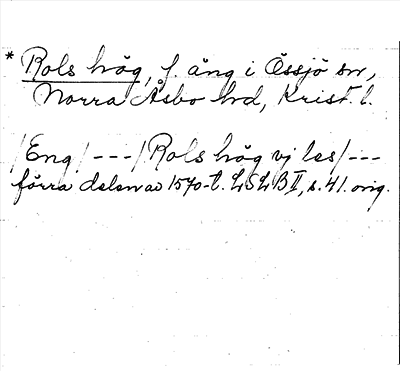 * Rols hög, f. äng i Össjö sn,
Norra Åsbo hd, Krist. l.
/Eng/ --- /Rols hög vj les/ ---
förra delen av 1570-t. LSLB II, s. 41. orig.